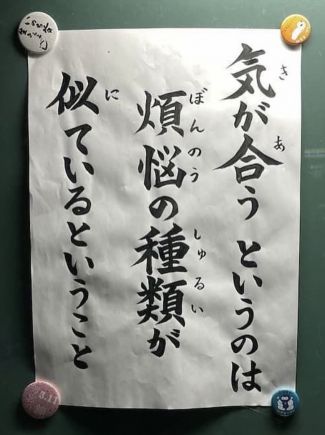 気が合う というのは
煩悩の種類が
似ているということ
き あ
ぼんのう しゅるい
に
8.11